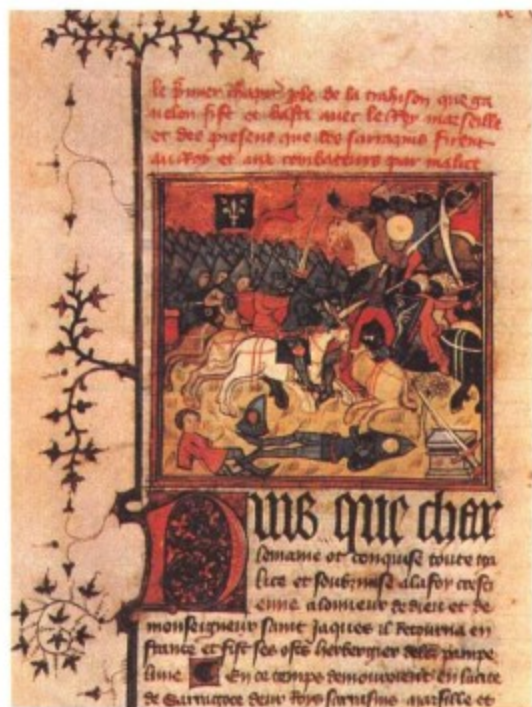 le chapitre de la trahison que ga
nelon fist et basti avec le Roy marseille
et des presens que les sarrazins firent
au Roy et aux combatteurs par malice
Puis que char
lemaine ot conquise toute ga
lice et soubzmise a la foy cresti
enne a lonneur de dieu et de
monseigneur saint Jaques il Retourna en
france et fist ses ostz herbergier deles pampe
lune En ce temps demouroient en la cite
de Sarragoce deux Roys sarrasins marsille et